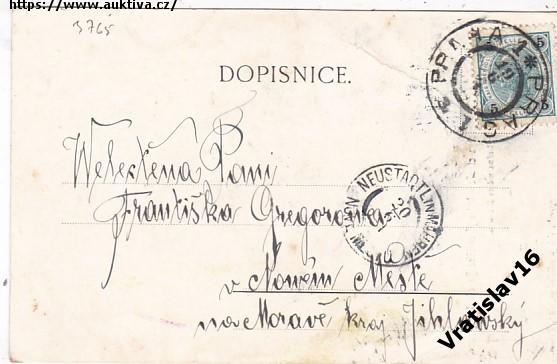 https://www.auktiva.cz/
3765
DOPISNICE.
PRAHA 1 * PRAG 1 *
5
Velectěná Paní
Františka Gregorova
NEUSTADTL IN MÄHREN
v Novém Městě
na Moravě kraj Jihlavský
Vratislav16